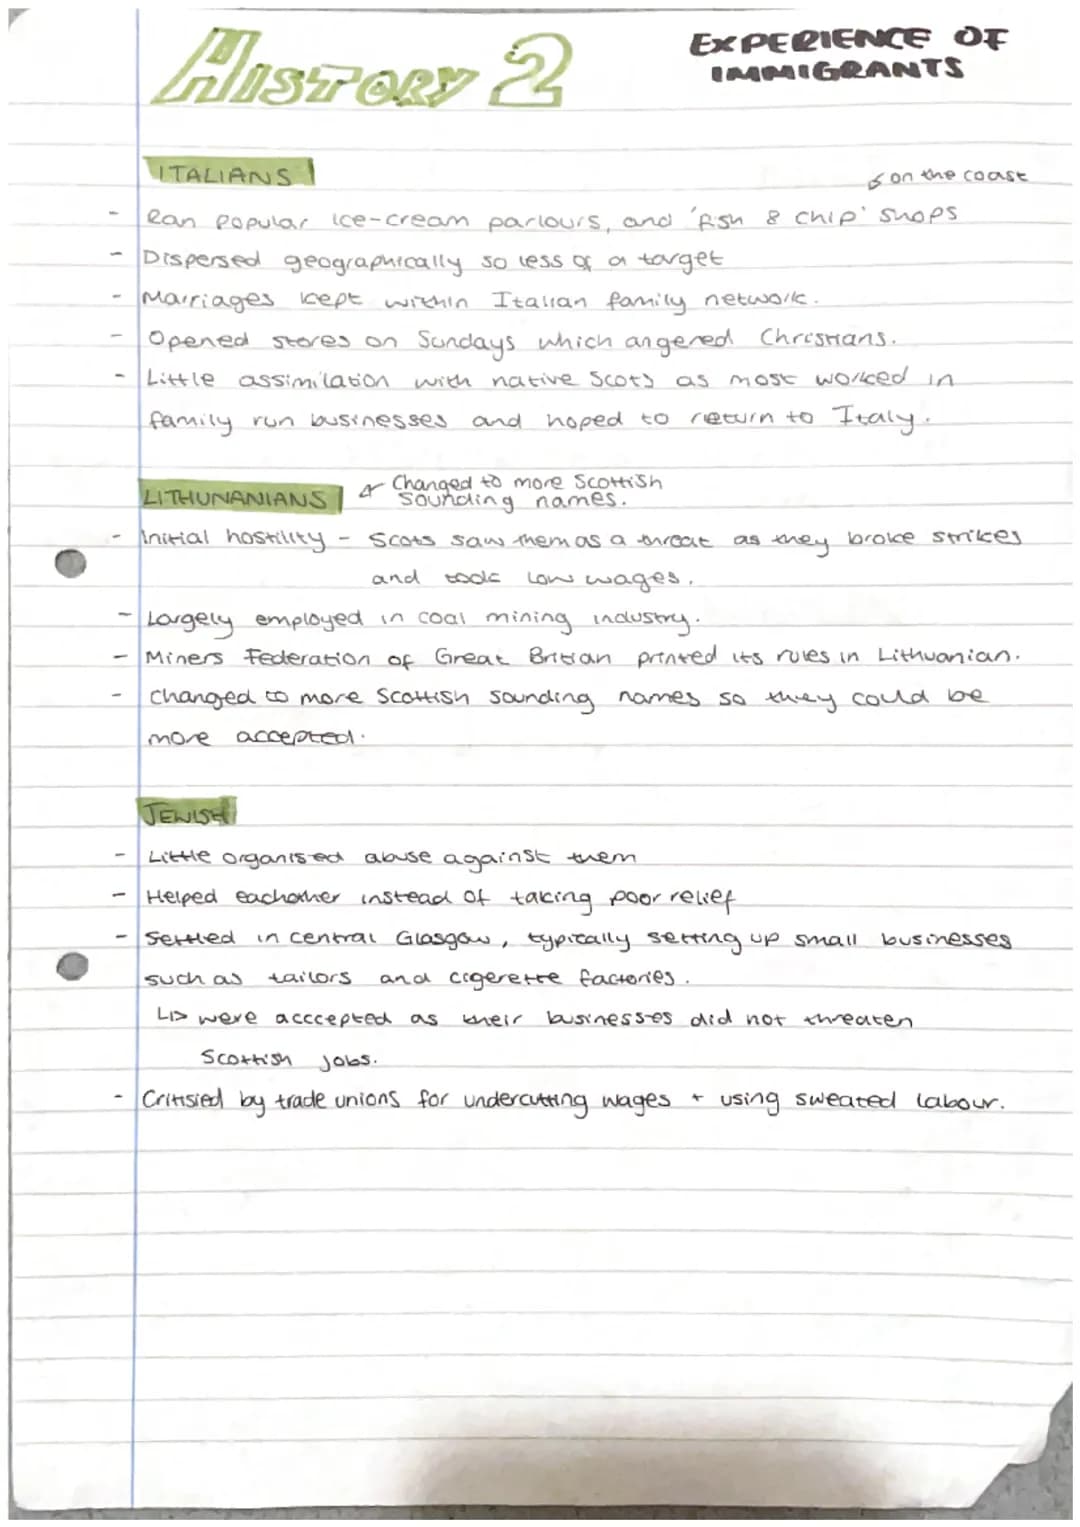 HISTORY 2
EXPERIENCE OF
IMMIGRANTS
ITALIANS
on the coast
- Ran popular ice-cream parlours, and 'fish & chip' shops
- Dispersed geographically so less of a target
- Marriages kept within Italian family network.
- Opened stores on Sundays which angered Christians.
- Little assimilation with native Scots as most worked in
family run businesses and hoped to return to Italy.
LITHUNANIANS
Changed to more Scottish
sounding names.
- Initial hostility - Scots saw them as a threat as they broke strikes
and took low wages.
- Largely employed in coal mining industry.
- Miners Federation of Great Britian printed its rules in Lithuanian.
- Changed to more Scottish sounding names so they could be
more accepted.
JEWISH
- Little organised abuse against them
- Helped eachother instead of taking poor relief
- Settled in central Glasgow, typically setting up small businesses
such as tailors and cigerette factories.
↳ were acccepted as their businesses did not threaten
Scottish jobs.
- Critisied by trade unions for undercutting wages + using sweated labour.